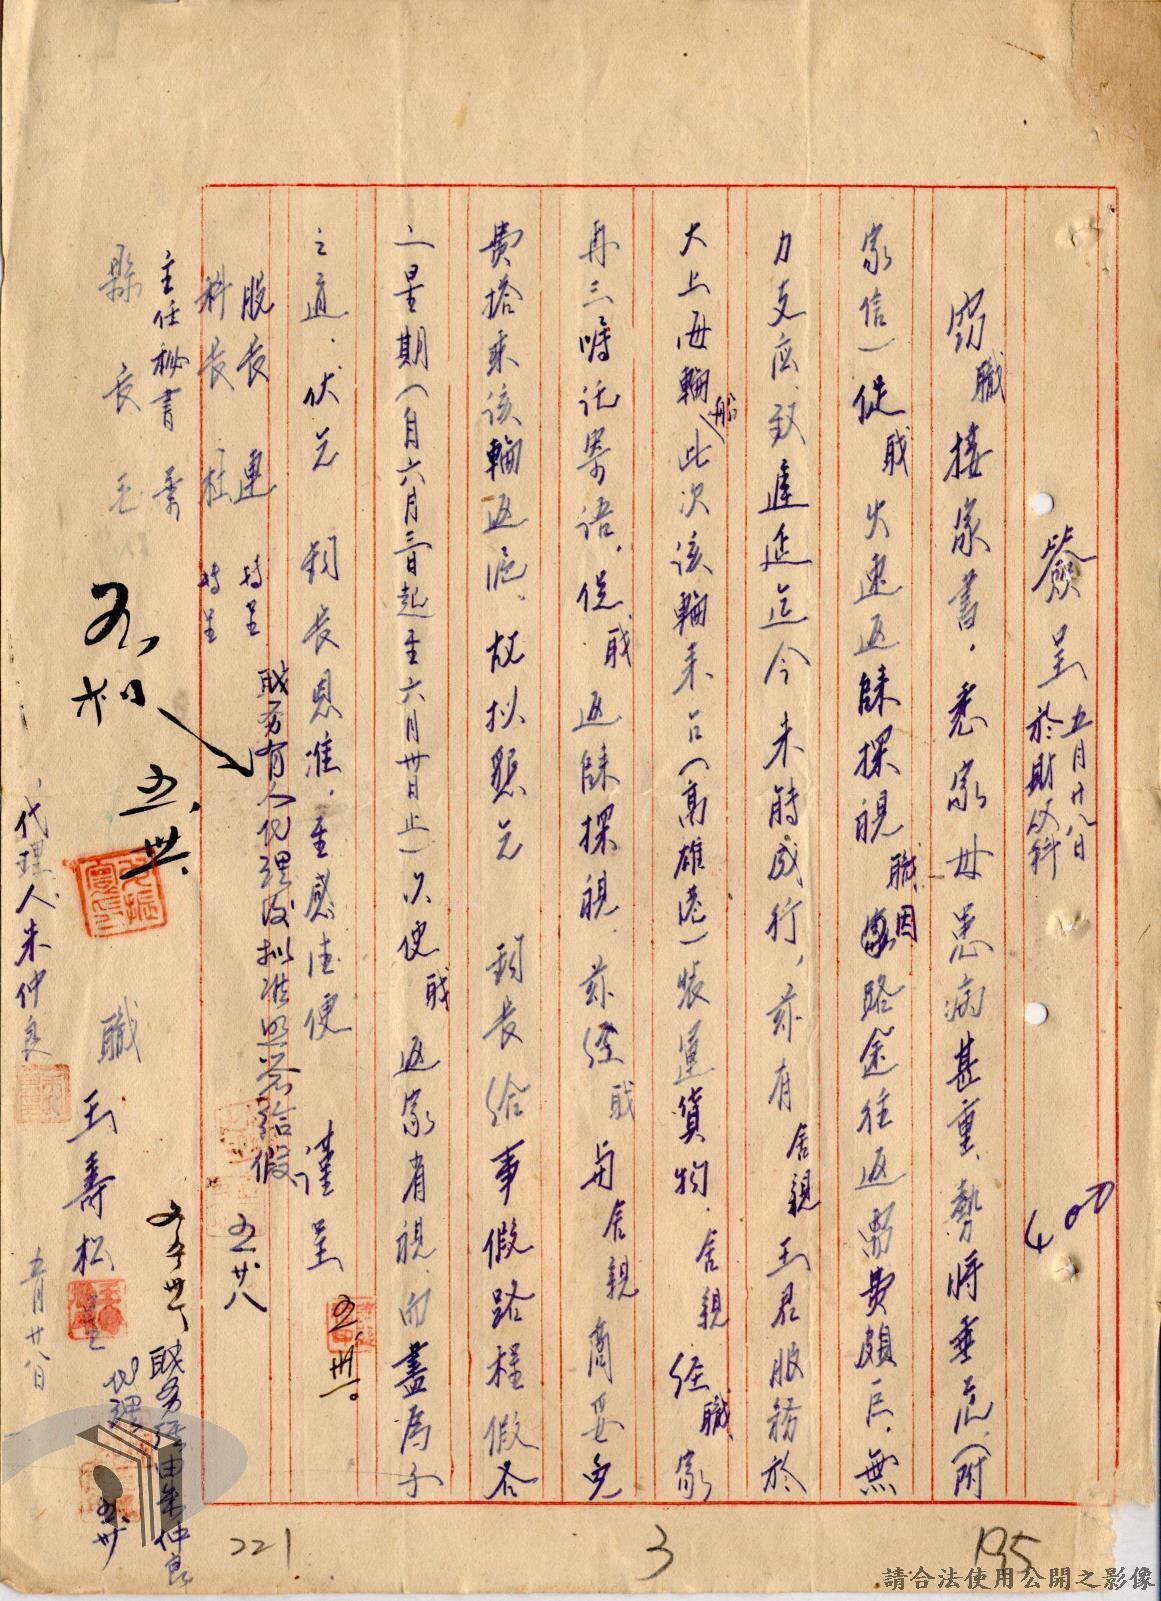 簽呈 五月廿八日 於財政科
400
竊職接家書．悉家母患病甚重、勢將垂危、(附
家信)促職火速返歸探視、職因路途往返需費頗巨、無
力支應．致遲延迄今未時成行，茲有舍親王君服務於
大上海輪船此次該輪來台(高雄港)裝運貨物．舍親經職家
再三囑託寄語．促職返歸探視．茲經職與舍親商妥免
費搭乘該輪返滬．故擬懇乞 鈞長給事假路程假各
二星期(自六月三日起至六月卅日止)以便職返家省視．而盡為子
之道．伏乞 鈞長恩准．至感德便 謹呈
股長 連 轉呈
科長 杜 轉呈
主任秘書
縣長 毛
職務有人代理後擬准照給假 五廿八
五、卅。
五、卅
職 王壽松 呈
職務請由朱仲良
代理 五卅
代理人朱仲良
五月廿八日
221
3
195
請合法使用公開之影像